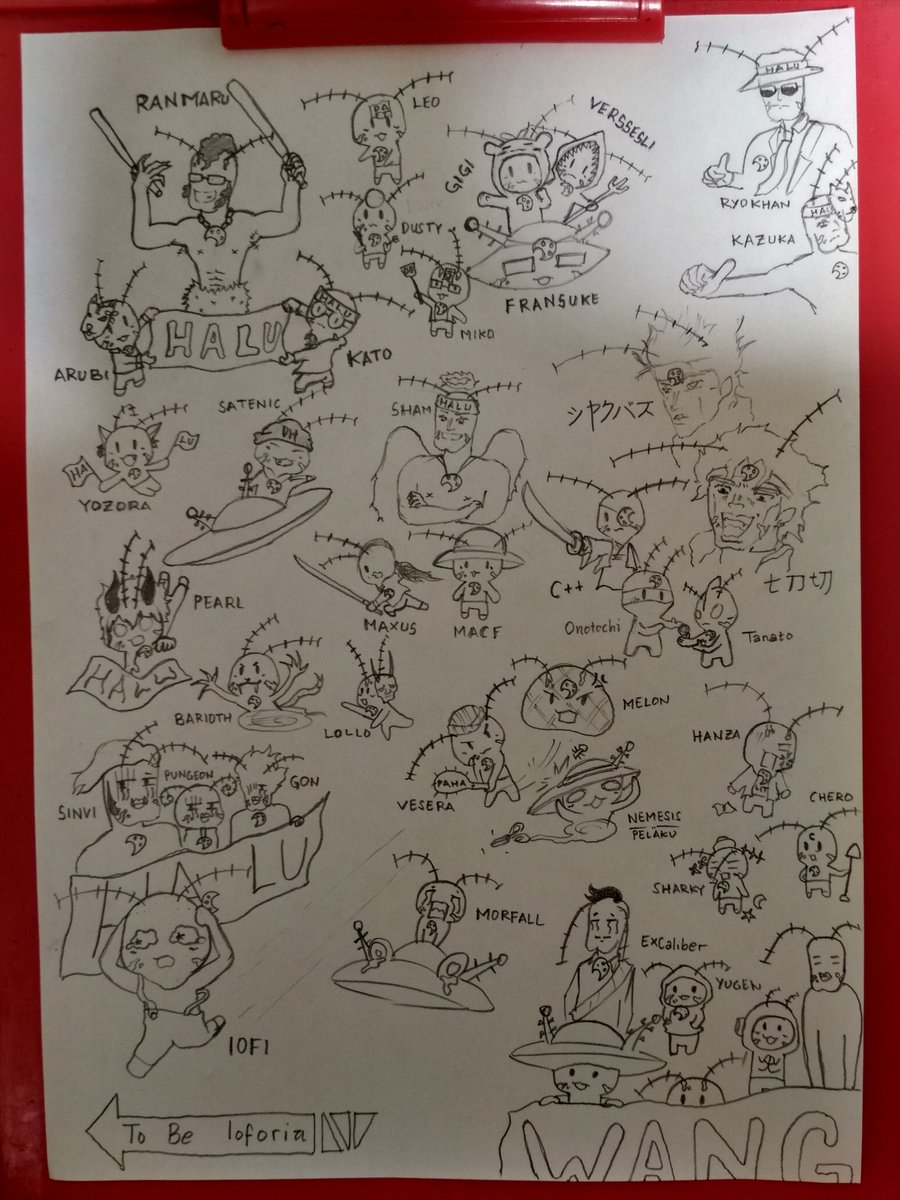 RANMARU
LEO
PA
GIGI
VERSSESLI
HALU
RYOKHAN
DUSTY
HALU
KAZUKA
FRANSUKE
MIKO
HALU
HALU
ARUBI
KATO
SATENIC
DH
SHAM
HALU
シヤクバズ
HA
LU
YOZORA
C++
七刀切
PEARL
MAXUS
MACF
Onotochi
Tanato
HALU
BARIDTH
LOLLO
MELON
HANZA
PAHA
VESERA
NEMESIS
PELAKU
SINVI
PUNGEON
GON
HALU
CHERO
C
SHARKY
MORFALL
ExCaliber
YUGEN
IOFI
To Be Ioforia
WANG